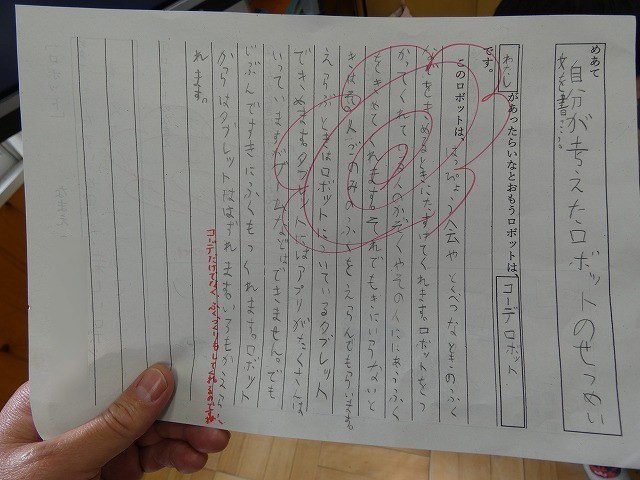 めあて
自分が考えたロボットのせつめい
文を書こう。
わたしがあったらいなとおもうロボットは、コーデロボット
です。
このロボットは、はっぴょう会や とくべつなときのふく
をきめるときにたすけてくれます。ロボットをつ
かってくれている人のかぞくやその人ににあうふく
をきめてくれます。それでもきにいらないと
きは その人ごのみのふくをえらんでもらいます。
えらぶときはロボットについているタブレット
でできめます。タブレットにはアプリがたくさんは
いっていますがゲームなどはできません。でも
じぶんですきにふくもつくれます。ロボット
からはタブレットははずれます。いろもかえら
れます。
コーデだけでなく、ふくづくりもしてくれるのですね